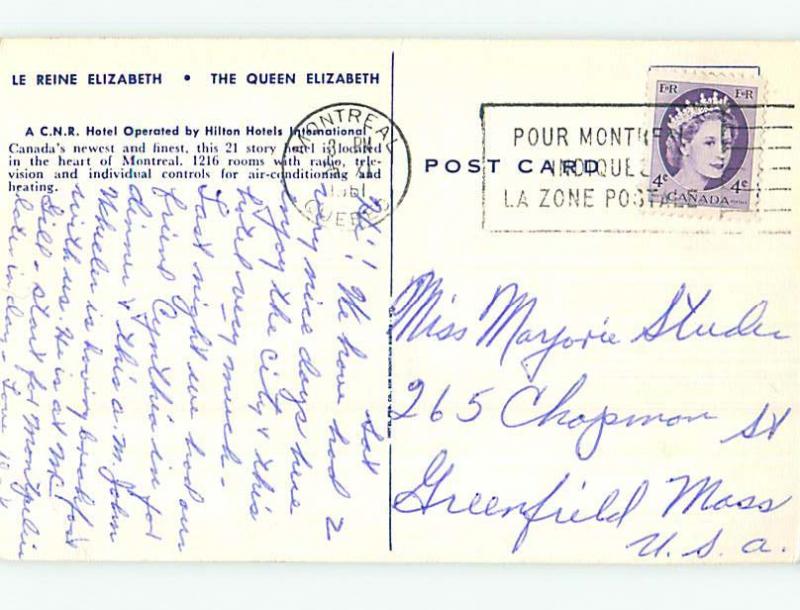 LE REINE ELIZABETH • THE QUEEN ELIZABETH
A C.N.R. Hotel Operated by Hilton Hotels International
Canada's newest and finest, this 21 story hotel is located
in the heart of Montreal. 1216 rooms with radio, tele-
vision and individual controls for air-conditioning and
heating.
Sat
Hi! We have had 2
very nice days here
enjoy the city & this
hotel very much -
Last night we had our
friend Cynthia in for
dinner & this a.m. John
Wheeler is having breakfast
with us. He is at Mc
Gill - start for Montpelier
later in day - Love
POST CARD
MONTREAL
PM
1961
QUEBEC
POUR MONTREAL
INDIQUEZ
LA ZONE POSTALE
E II R E II R
4c 4c
CANADA
Miss Marjorie Studer
265 Chapman St
Greenfield Mass
U.S.A.